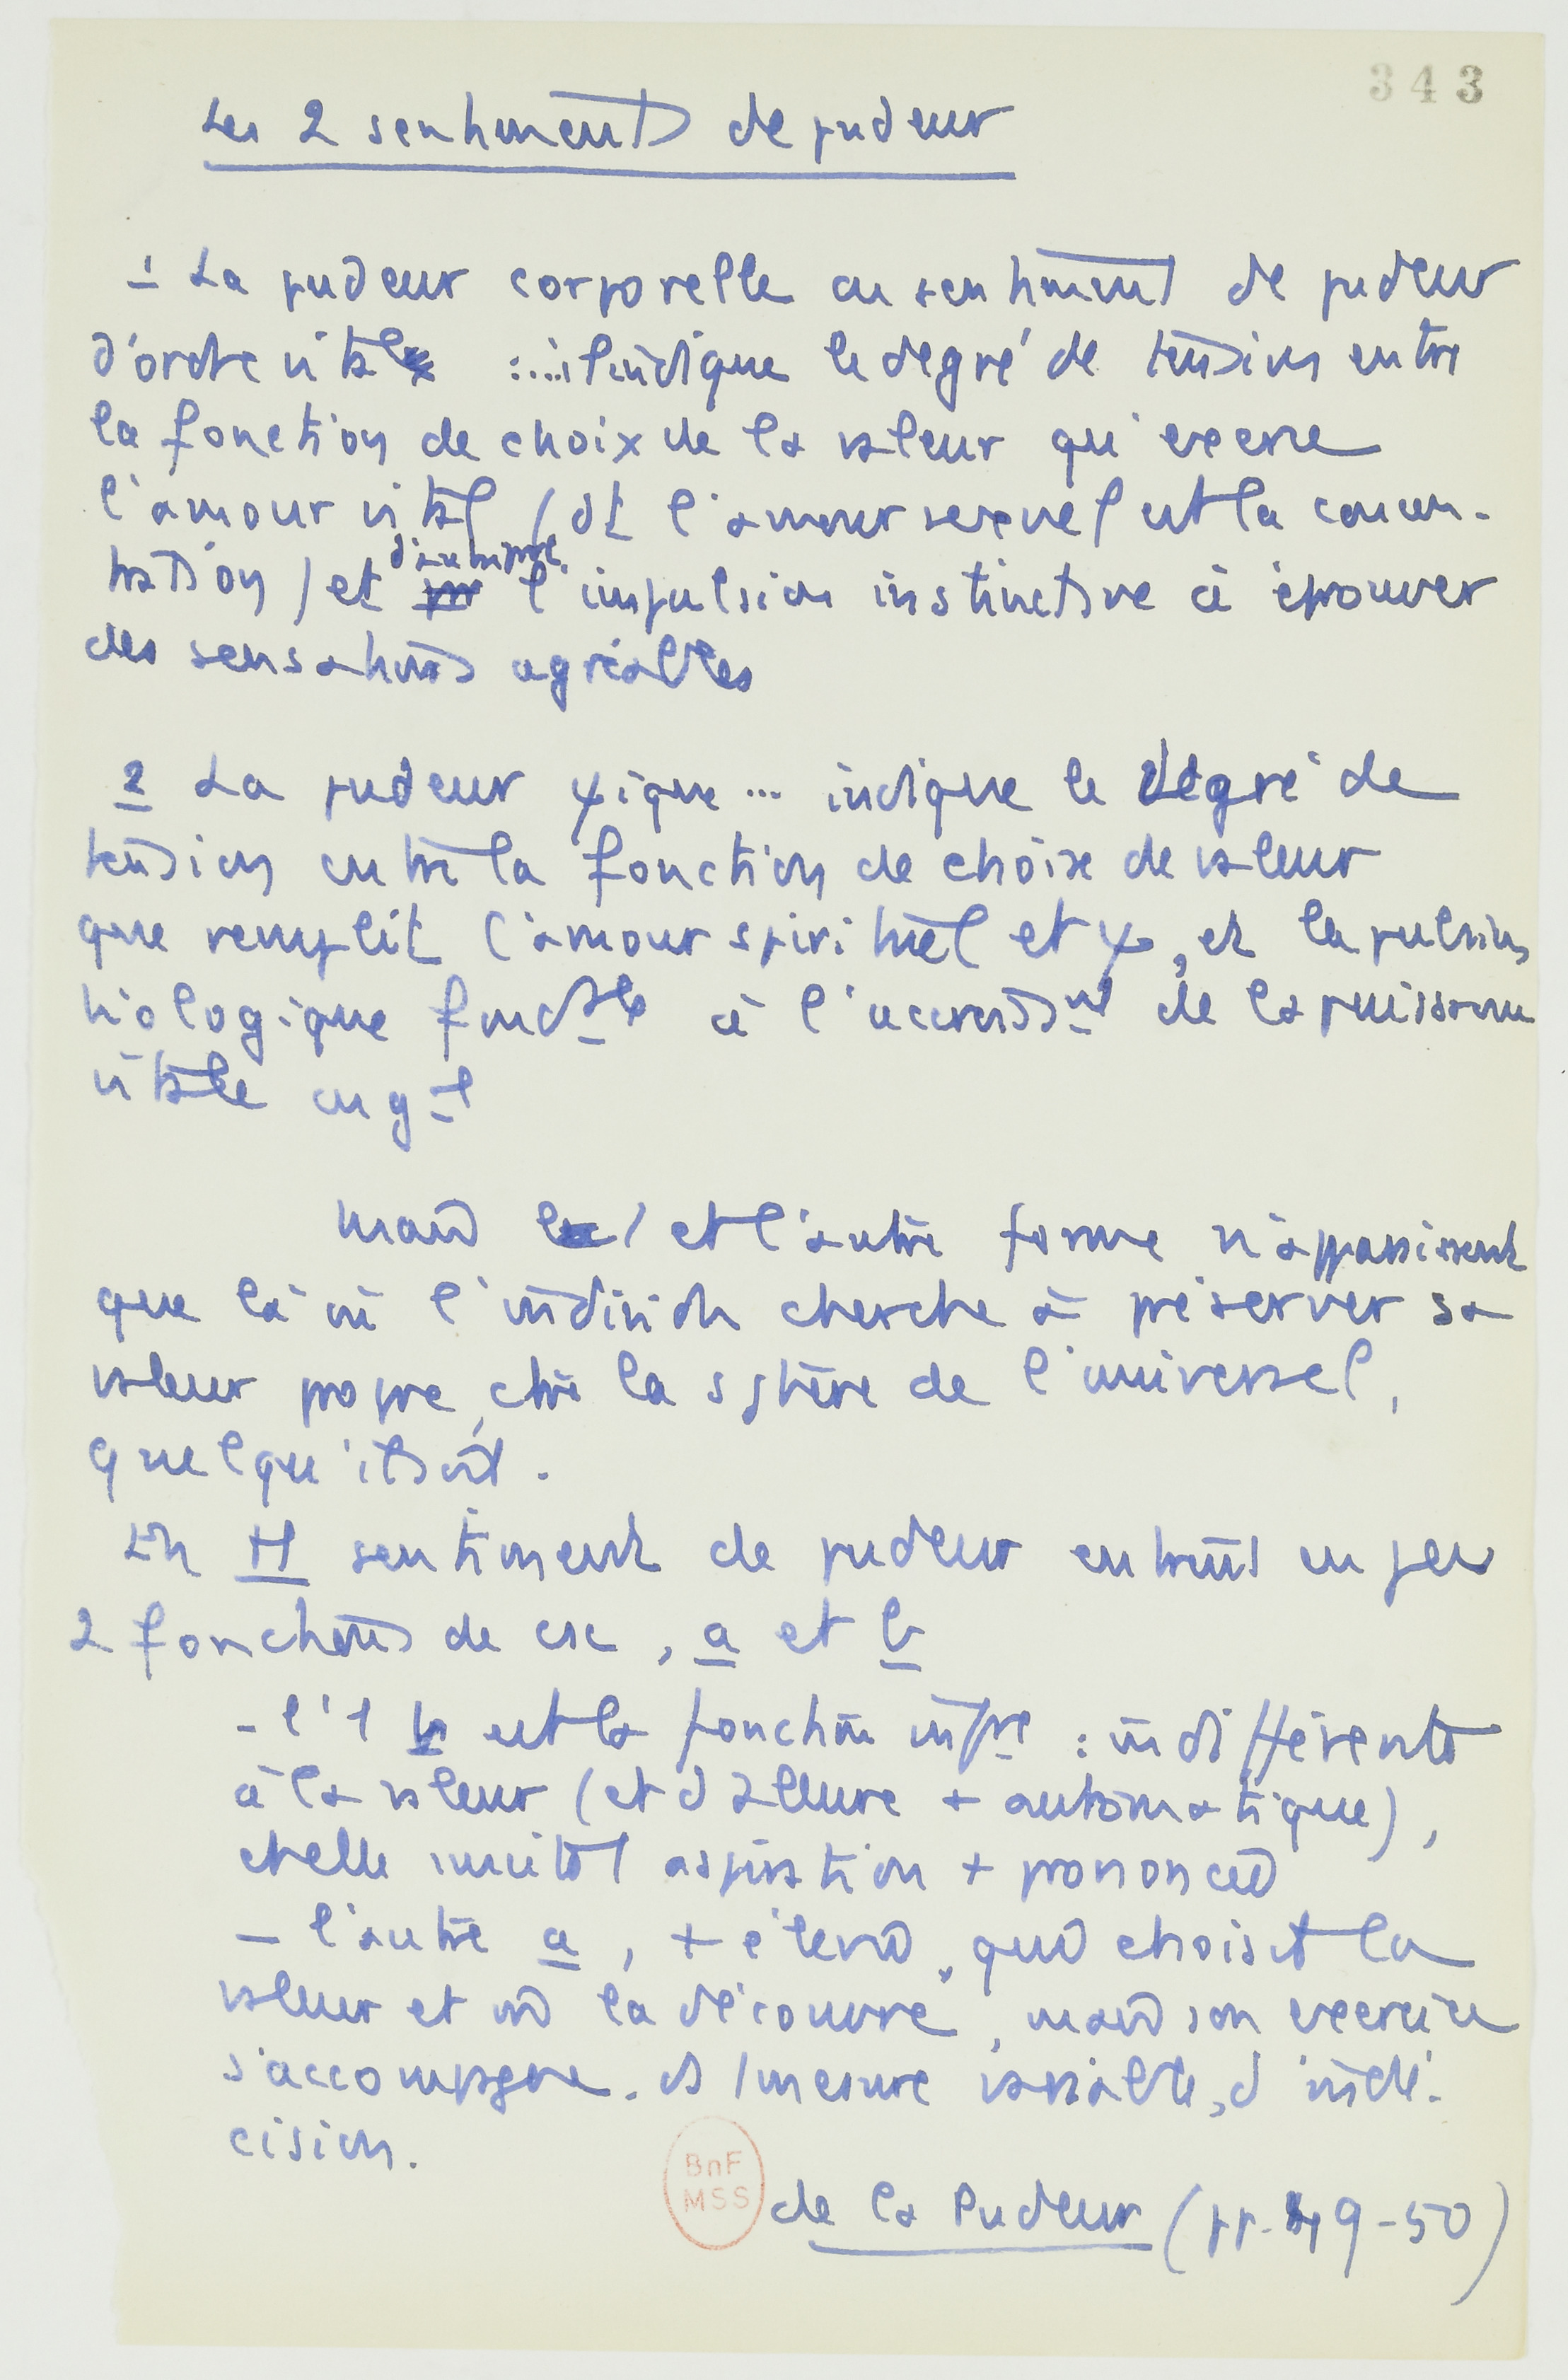 343
Les 2 sentiments de pudeur
1 La pudeur corporelle ou sentiment de pudeur
d'ordre vital : ...il indique le degré de tension entre
la fonction de choix de la valeur qu'exerce
l'amour vital (dt l'amour sexuel est la concen-
tration) et d'autre part l'impulsion instinctive à éprouver
des sensations agréables
2 La pudeur ψique ... indique le degré de
tension entre la fonction de choix de valeur
que remplit l'amour spirituel et ψ, et la pulsion
biologique fondtale à l'accroisst de la puissance
vitale en gal
Mais l'1 et l'autre forme n'apparaissent
que là où l'individu cherche à préserver sa
valeur propre, ctre la sphère de l'universel,
quel qu'il soit.
En tt sentiment de pudeur entrent en jeu
2 fonctions de csc, a et b
- l'1 b est la fonction infre : indifférente
à la valeur (et d'allure + automatique),
et elle incite à l'aspiration + prononcée
- l'autre a, + étend, qui choisit la
valeur et la découvre, mais son exercice
s'accompagne, ds 1 mesure variable, d'indé-
cision.
BnF
MSS
de la Pudeur (pp. 49-50)